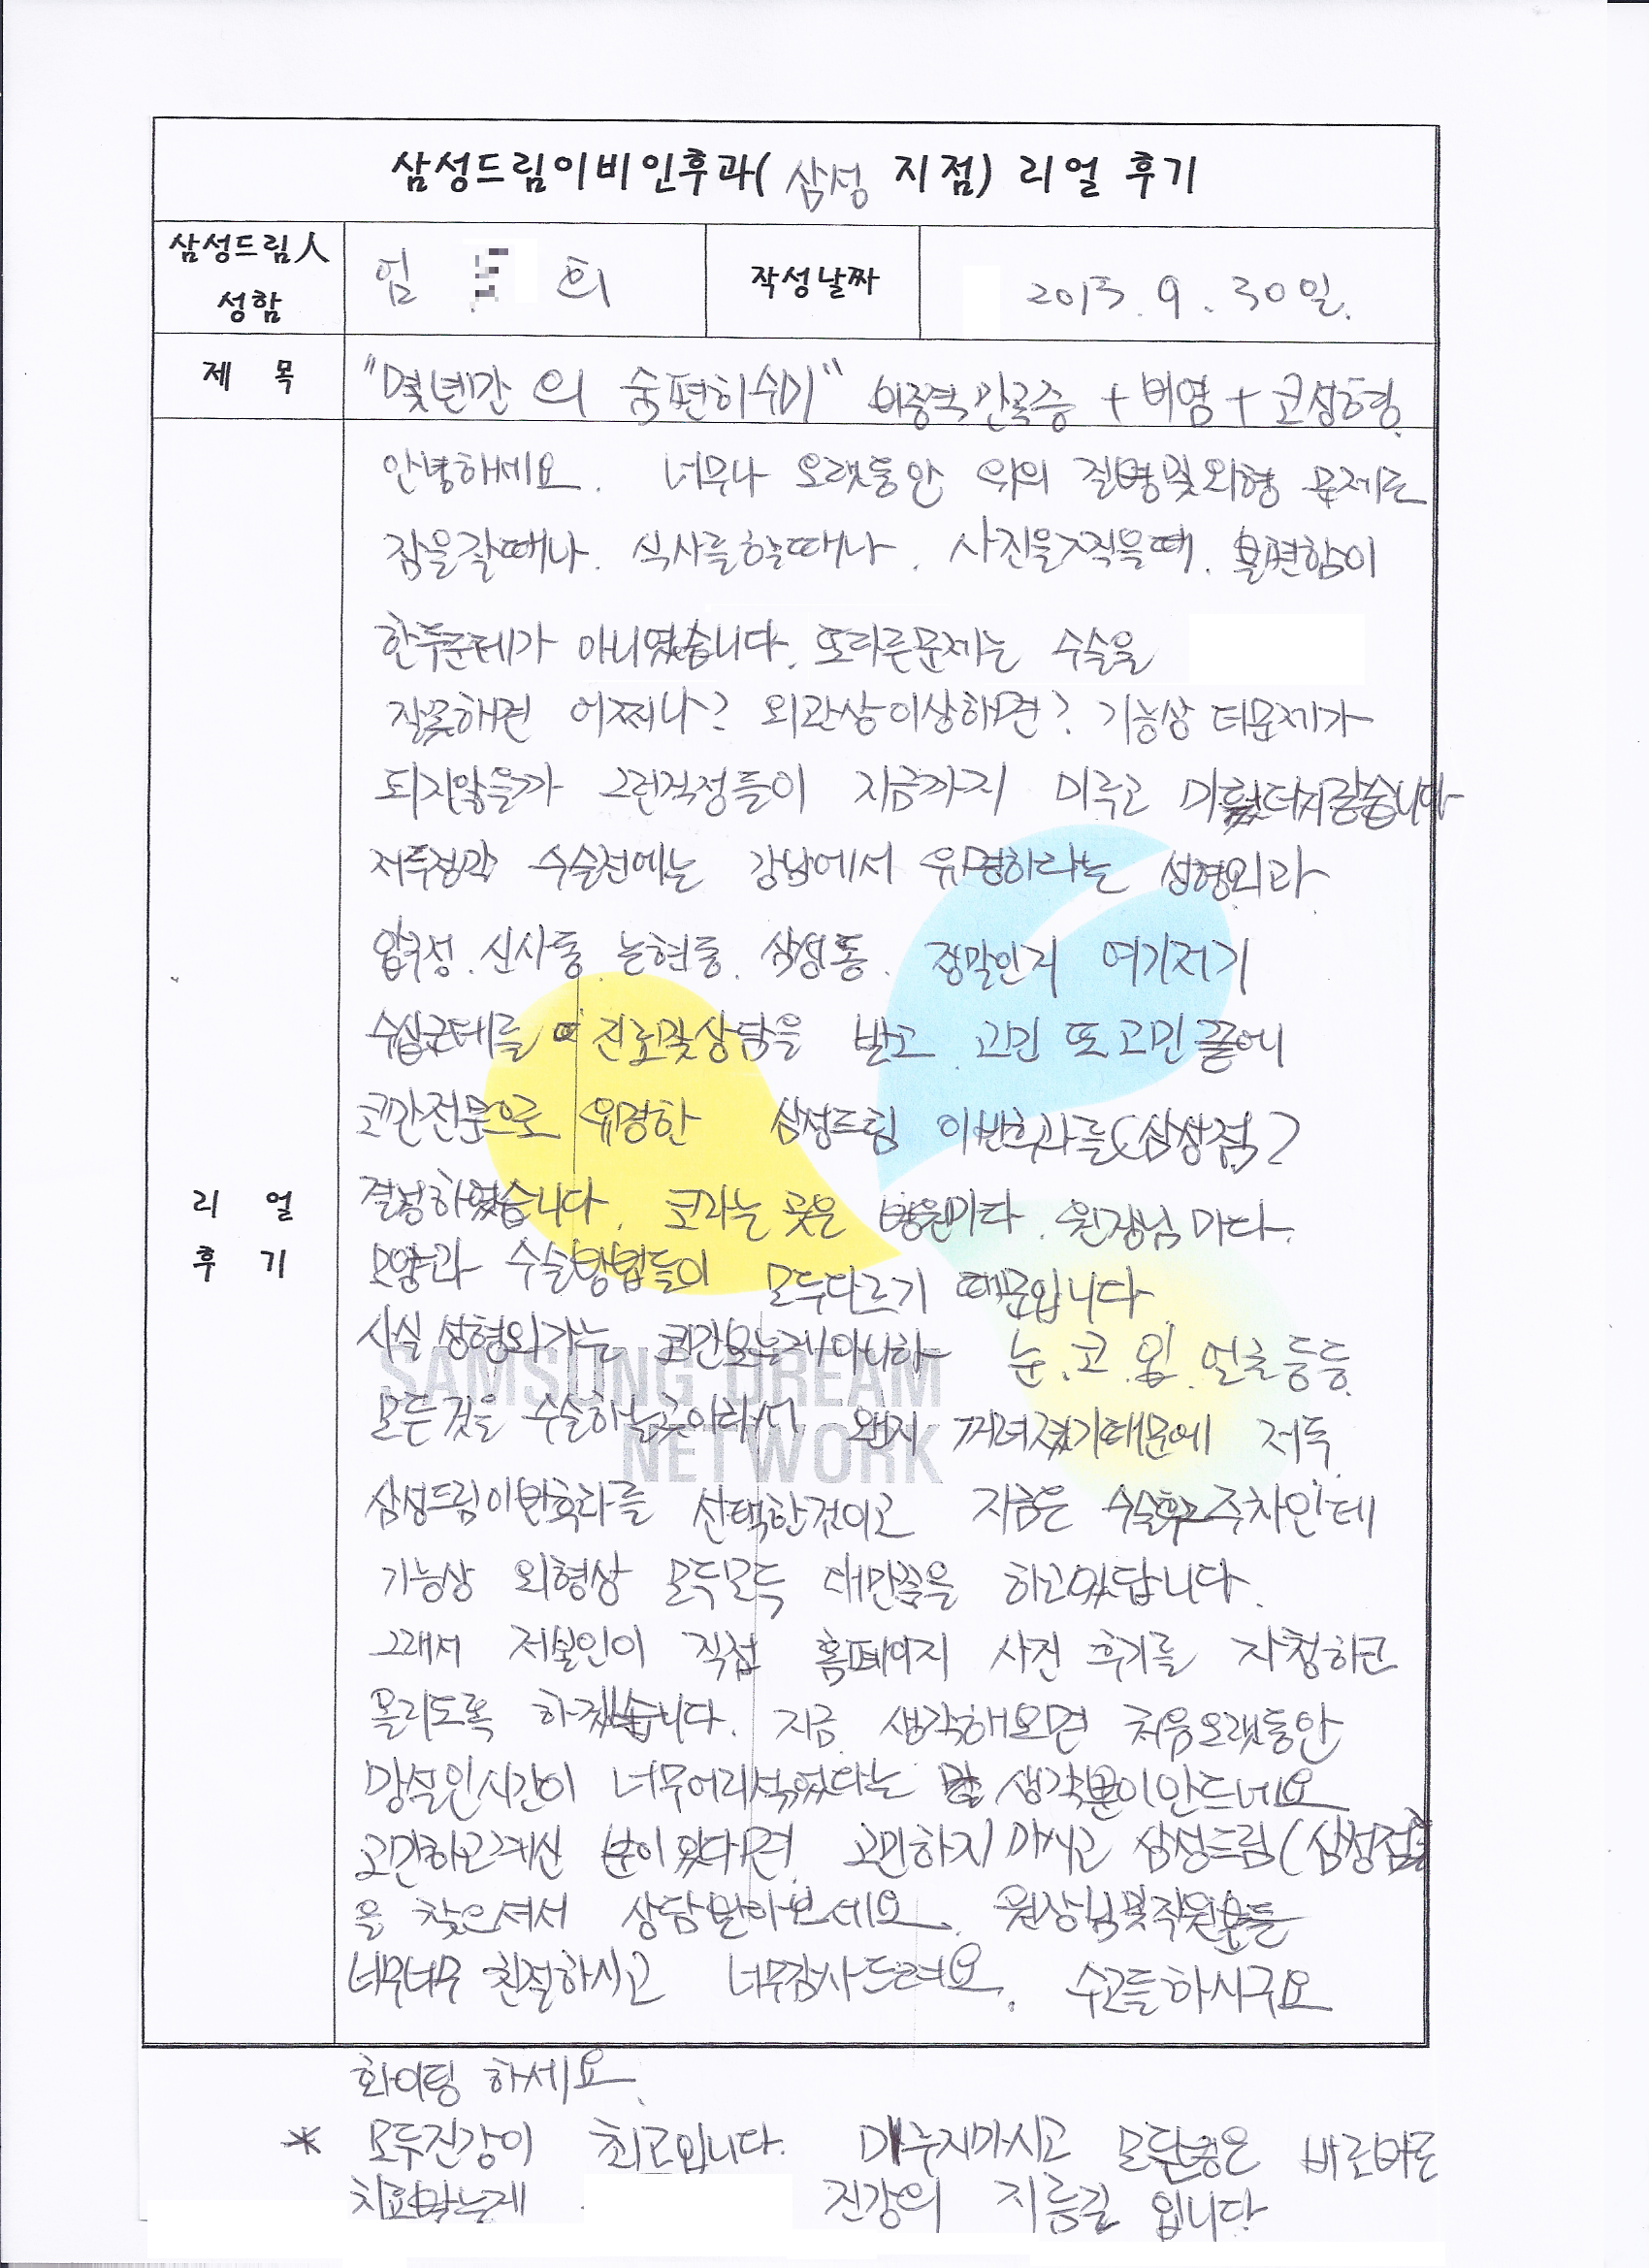 삼성드림이비인후과( 삼성 지점) 리얼 후기
삼성드림人 성함
엄 희
작성날짜
2013. 9. 30일.
제 목
"몇년간의 숨편히쉬기" 비중격만곡증 + 비염 + 코성형
리 얼 후 기
안녕하세요. 너무나 오랫동안 위의 질병및외형 문제로
잠을잘때나. 식사를할때나. 사진을찍을때. 불편함이
한두군데가 아니였습니다. 또다른문제는 수술을
잘못해면 어쩌나? 외관상이상해면? 기능상 더문제가
되지않을까 그런걱정들이 지금까지 미루고
저두정각 수술전에는 강남에서 유명하다는 성형외과
압구정. 신사동. 논현동. 삼성동. 정말인지 여기저기
수십군데를 진료및상담을 받고 고민 또 고민끝에
코만전문으로 유명한 삼성드림 이빈후과를(삼성점)
결정하였습니다. 코라는 곳은 병원마다. 원장님 마다.
모양과 수술방법들이 모두다르기 때문입니다
사실 성형외과는 코만보는게아니라 눈. 코. 입. 얼굴등등
모든것을 수술하는곳이라서 왠지 꺼녀졌기때문에 저두
삼성드림이빈후과를 선택한것이고 지금은 수술후2주차인데
기능상 외형상 모두모두 대만족을 하고있답니다.
그래서 저본인이 직접 홈페이지 사진 후기를 자청하고
올리도록 하겠습니다. 지금 생각해보면 처음오랫동안
망설인시간이 너무어리석었다는 생각뿐이안드네요
고민하고계신 분이 있다면 고민하지 마시고 삼성드림(삼성점)
을 찾으셔서 상담받아보세요. 원장님및직원분들
너무너무 친절하시고 너무감사드려요. 수고들하시구요
화이팅 하세요.
* 모두건강이 최고입니다. 미루지마시고 모든병은 바로바로
치료받는게 건강의 지름길 입니다
SAMSUNG DREAM
NETWORK